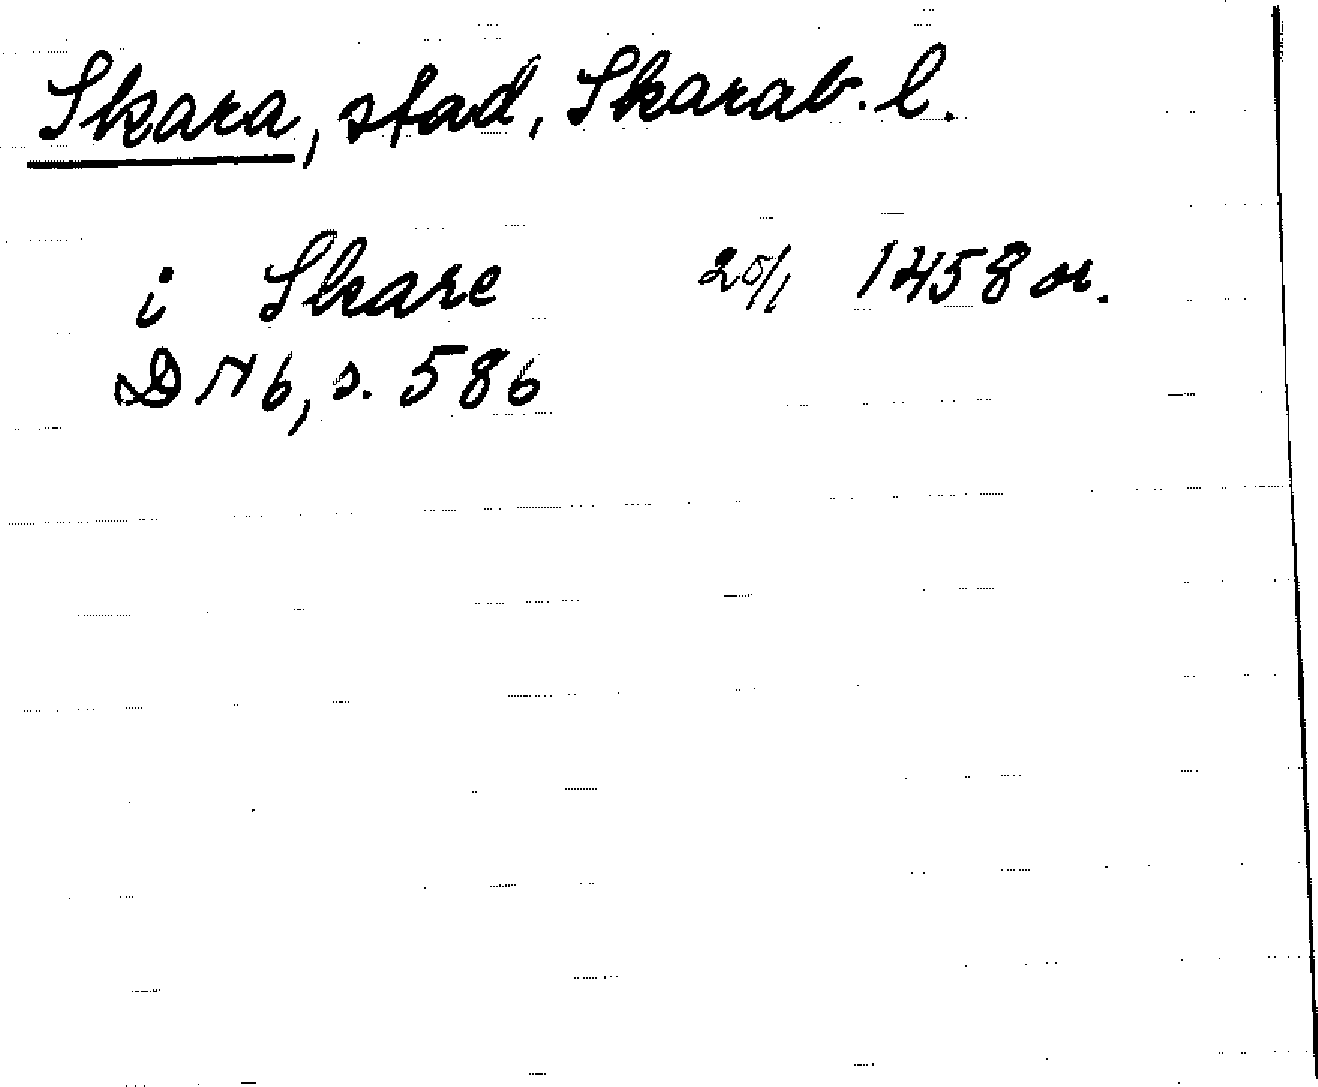 Skara, stad, Skarab. l.
i Skare 20/1 1458 or.
DN 6, s. 586